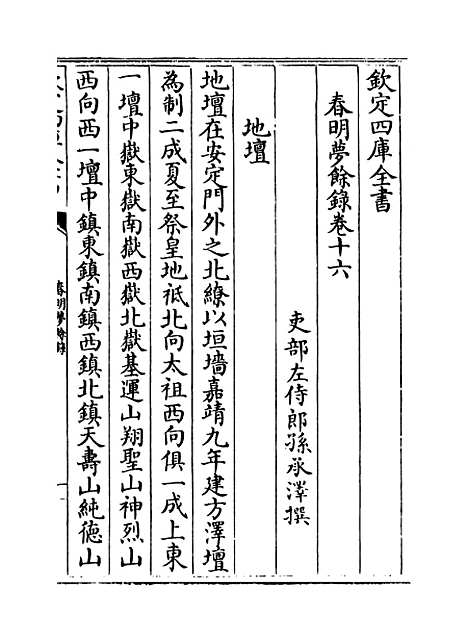 欽定四庫全書
春明夢餘錄卷十六
吏部左侍郎孫承澤撰
地壇
地壇在安定門外之北繚以垣墻嘉靖九年建方澤壇
為制二成夏至祭皇地祇北向太祖西向俱一成上東
一壇中嶽東嶽南嶽西嶽北嶽基運山翔聖山神烈山
西向西一壇中鎮東鎮南鎮西鎮北鎮天壽山純德山
春明夢餘錄
一